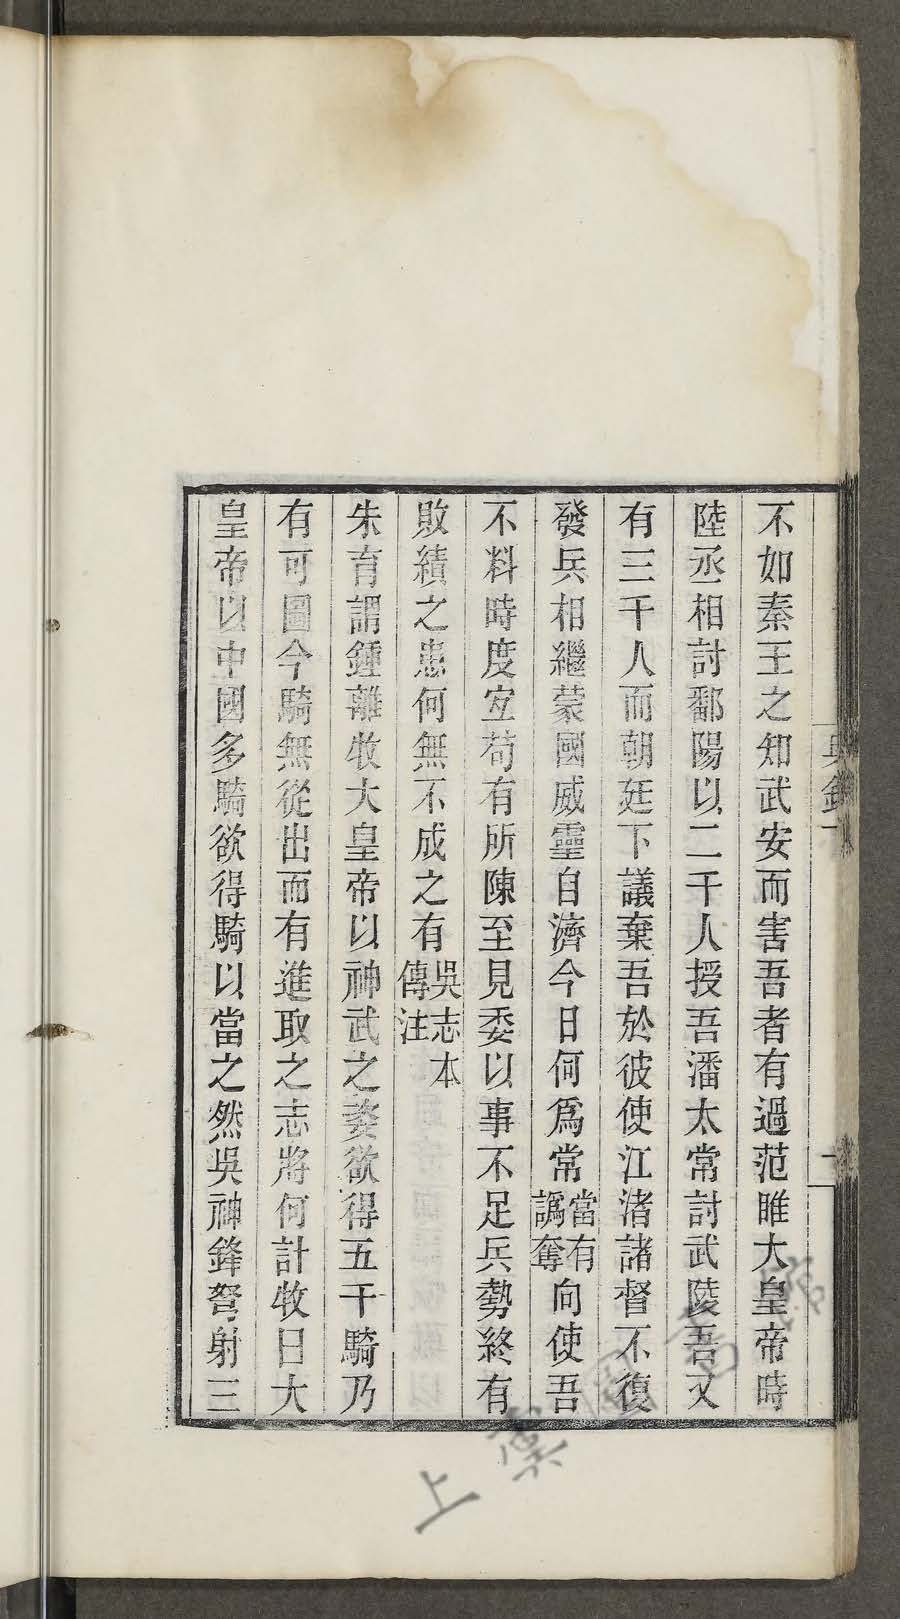 不如秦王之知武安而害吾者有過范睢大皇帝時
陸丞相討鄱陽以二千人授吾潘太常討武陵吾又
有三千人而朝廷下議棄吾於彼使江渚諸督不復
發兵相繼蒙國威靈自濟今日何爲常當有譌奪向使吾
不料時度宐苟有所陳至見委以事不足兵勢終有
敗績之患何無不成之有吳志本傳注
朱育謂鍾離牧大皇帝以神武之姿欲得五千騎乃
有可圖今騎無從出而有進取之志將何計牧曰大
皇帝以中國多騎欲得騎以當之然吳神鋒弩射三
吳錄
一
上虞圖書館